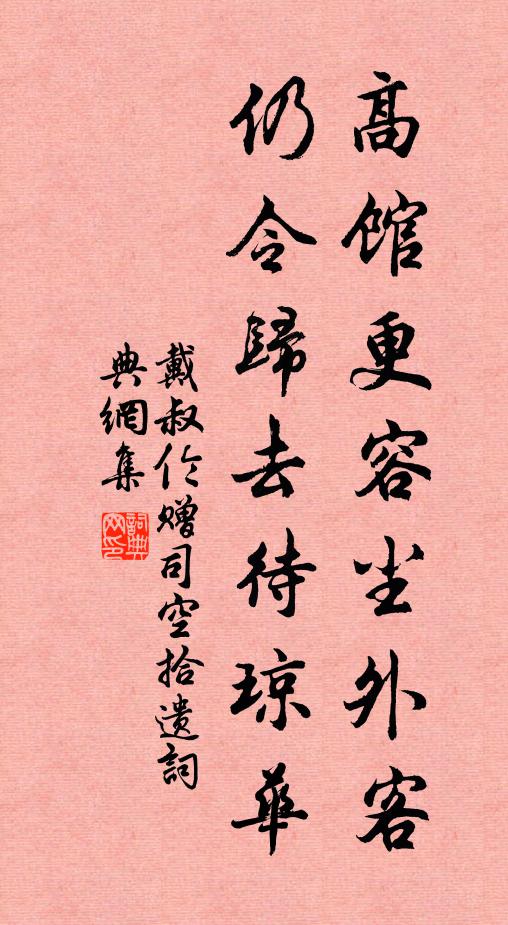 高館更容尘外客
仍令歸去待琼華
戴叔伦赠司空拾遗詞
典網集
詞典网印